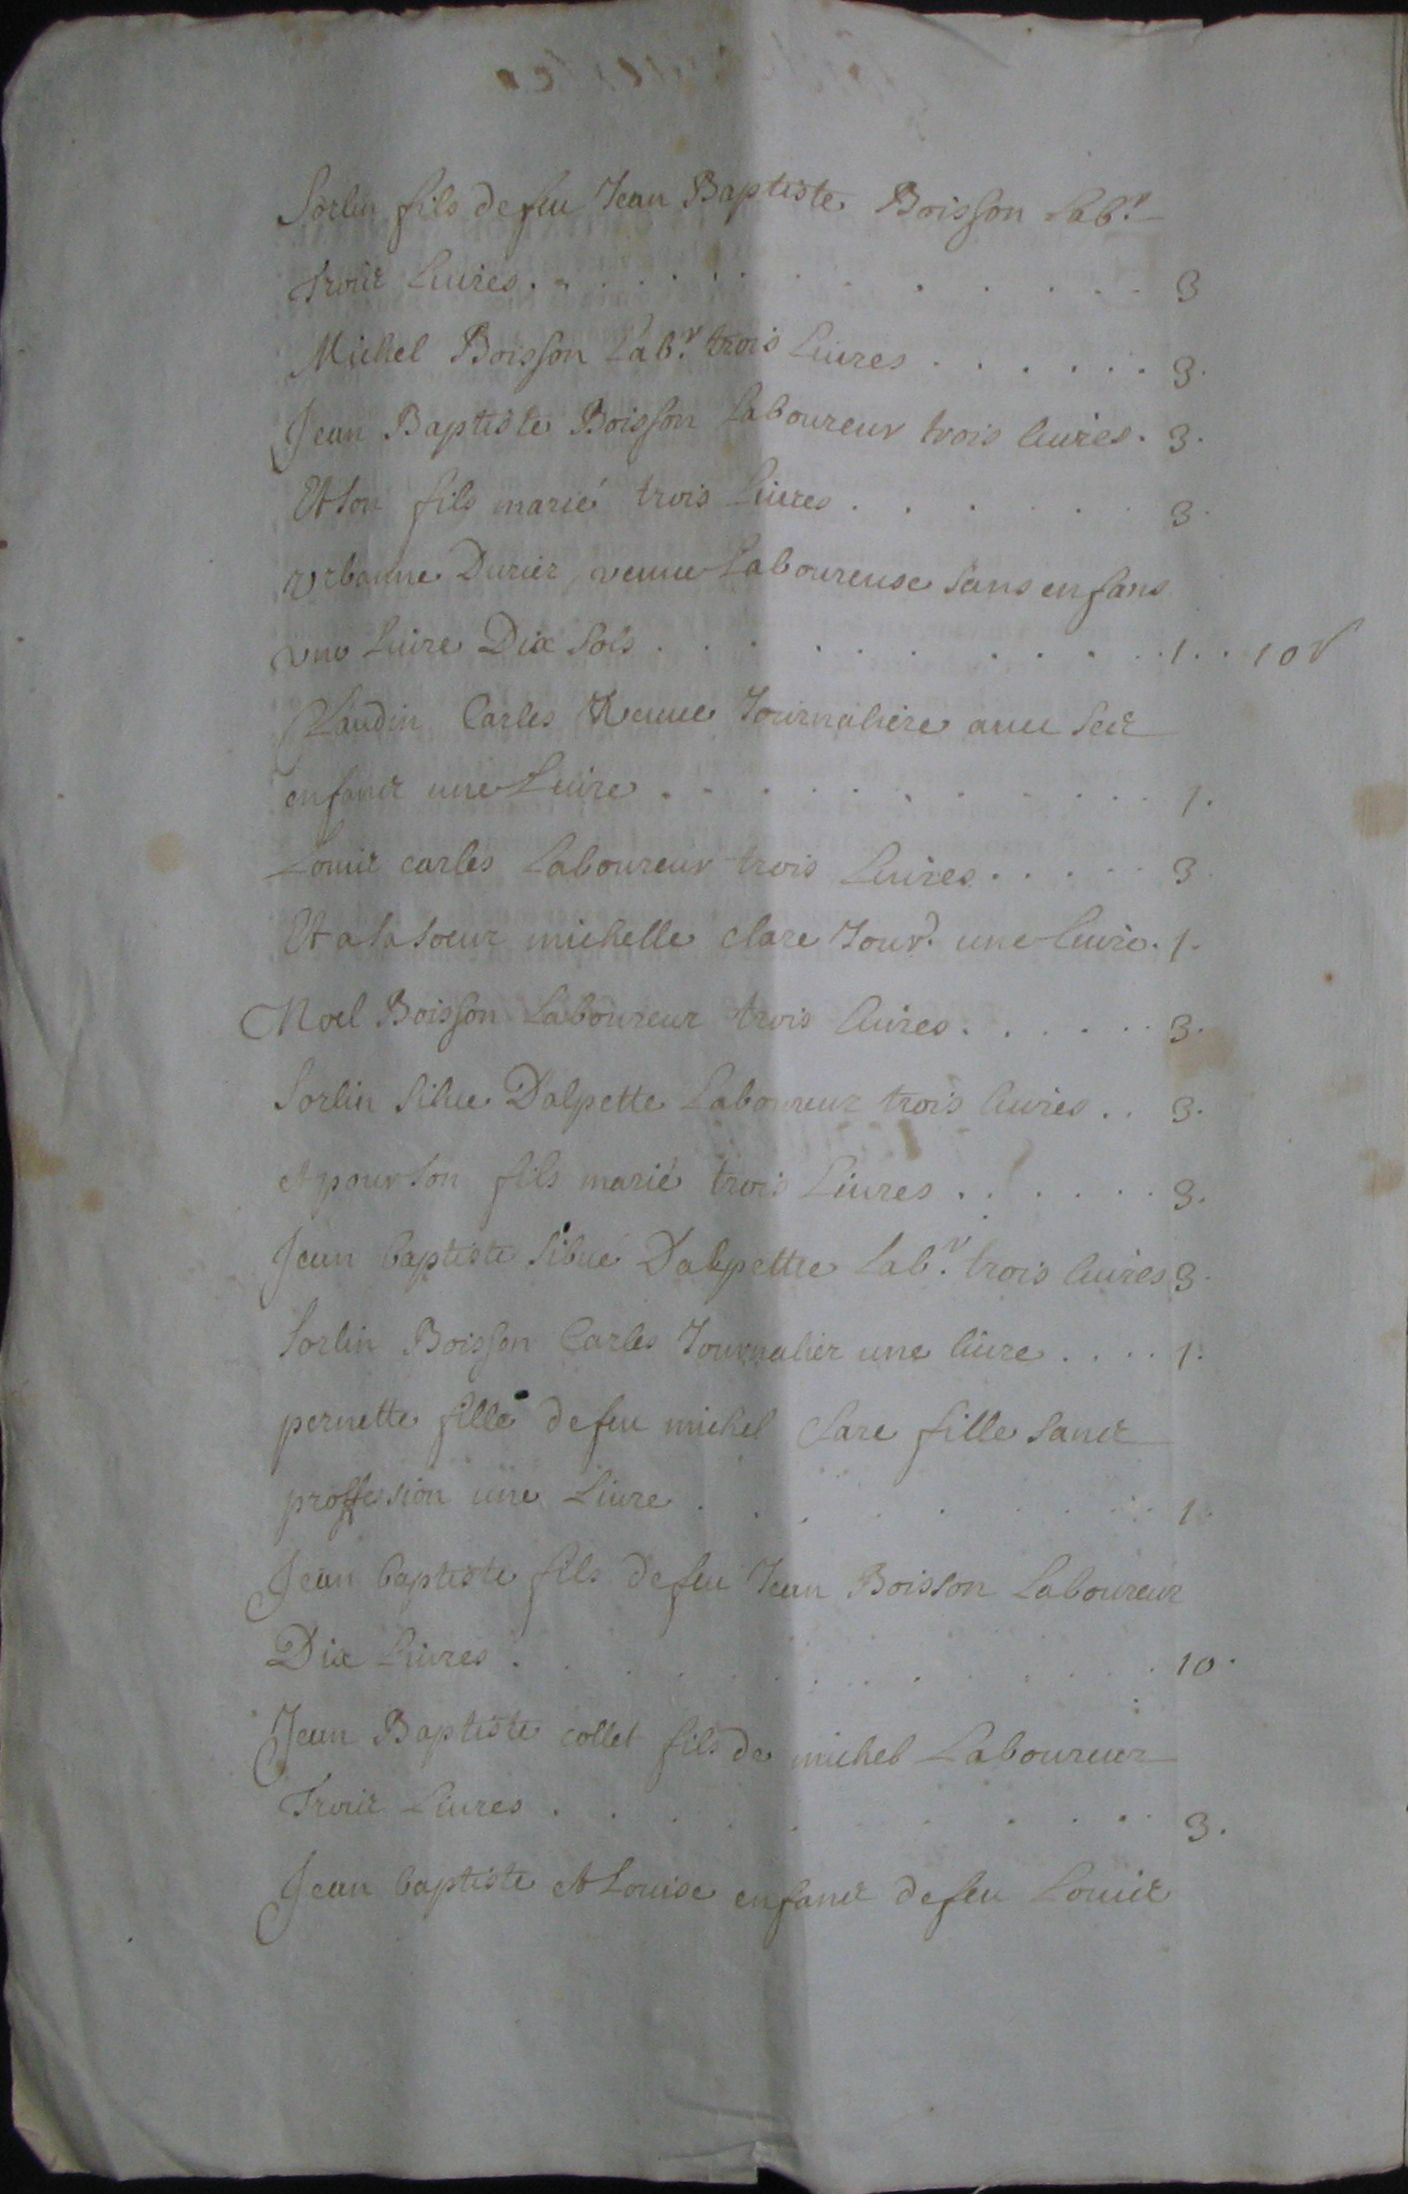 Sorlin fils de feu Jean Baptiste Boisson Lab.r
Trois Livres . . . . . . . . . . . 3
Michel Boisson Lab.r trois Livres . . . . . . 3.
Jean Baptiste Boisson Laboureur trois livres . 3.
Et son fils marié trois Livres . . . . . . 3.
Urbanne Durier veuve Laboureuse sans enfans
une Livre Dix sols . . . . . . . . . 1. . 10 s
Claudin Carles Veuve Journaliere avec ses
enfans une Livre . . . . . . . . . . 1.
Louis carles Laboureur trois Livres . . . . . 3
Et a sa soeur michelle clare Jour.e une livre . 1.
Noel Boisson Laboureur trois livres . . . . . . 3.
Sorlin Sibue Dalpette Laboureur trois livres . . 3.
et pour son fils marié trois Livres . . . . . . 3.
Jean baptiste Sibué Dalpette Lab.r trois livres 3.
Sorlin Boisson Carles Journalier une livre . . . . 1.
pernette fille de feu michel Clare fille sans
proffession une Livre . . . . . . . . . 1.
Jean baptiste fils de feu Jean Boisson Laboureur
Dix Livres . . . . . . . . . . . 10.
Jean Baptiste collet fils de michel Laboureur
Trois Livres . . . . . . . . . . . 3.
Jean baptiste et Louise enfans de feu Louis